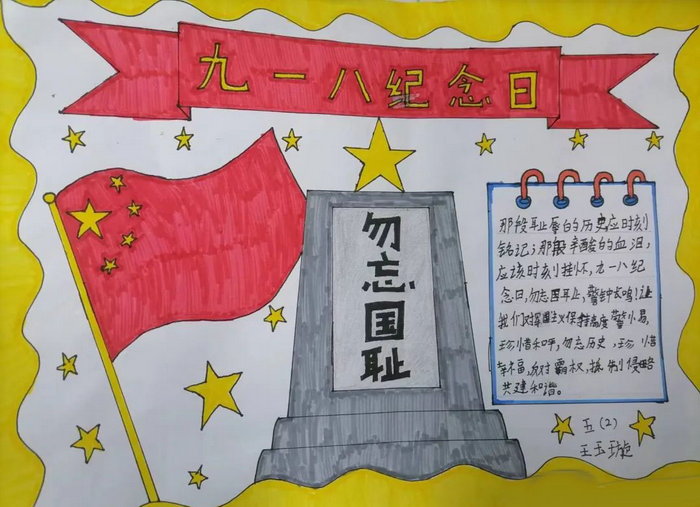 九一八纪念日
勿忘国耻
那段耻辱的历史应时刻
铭记；那段辛酸的血泪，
应该时刻挂怀，九一八纪
念日，勿忘国耻，警钟长鸣！让
我们对军国主义保持高度警惕，
珍惜和平，勿忘历史，珍惜
幸福，反对霸权，抵制侵略
共建和谐。
五（2）
王玉璇